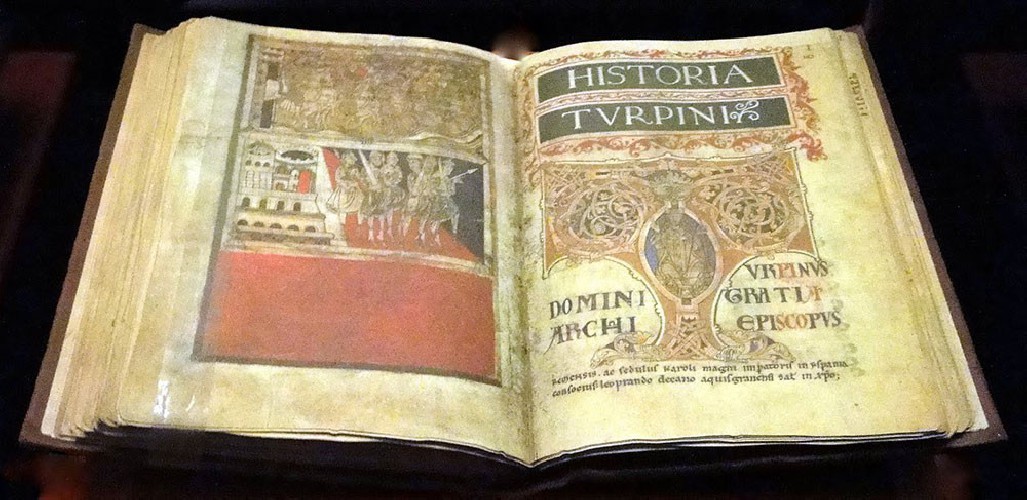 HISTORIA
TVRPINI
VRPINVS
DOMINI GRATIA
ARCHI EPISCOPVS
REMENSIS. ac sedulus karoli magni imperatoris in hispania
consocius. leoprando decano aquisgranensi sal in xpo;